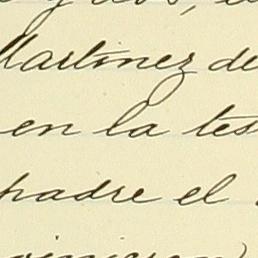 y dos,
Martinez de
en la tes
padre el